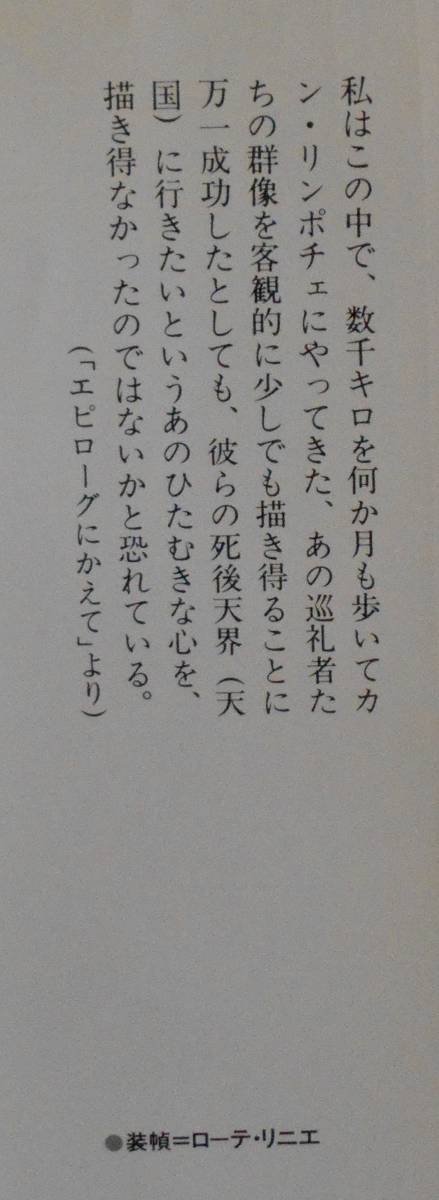 私はこの中で、数千キロを何か月も歩いてカ
ン・リンポチェにやってきた、あの巡礼者た
ちの群像を客観的に少しでも描き得ることに
万一成功したとしても、彼らの死後天界（天
国）に行きたいというあのひたむきな心を、
描き得なかったのではないかと恐れている。
（「エピローグにかえて」より）
●装幀＝ローテ・リニエ